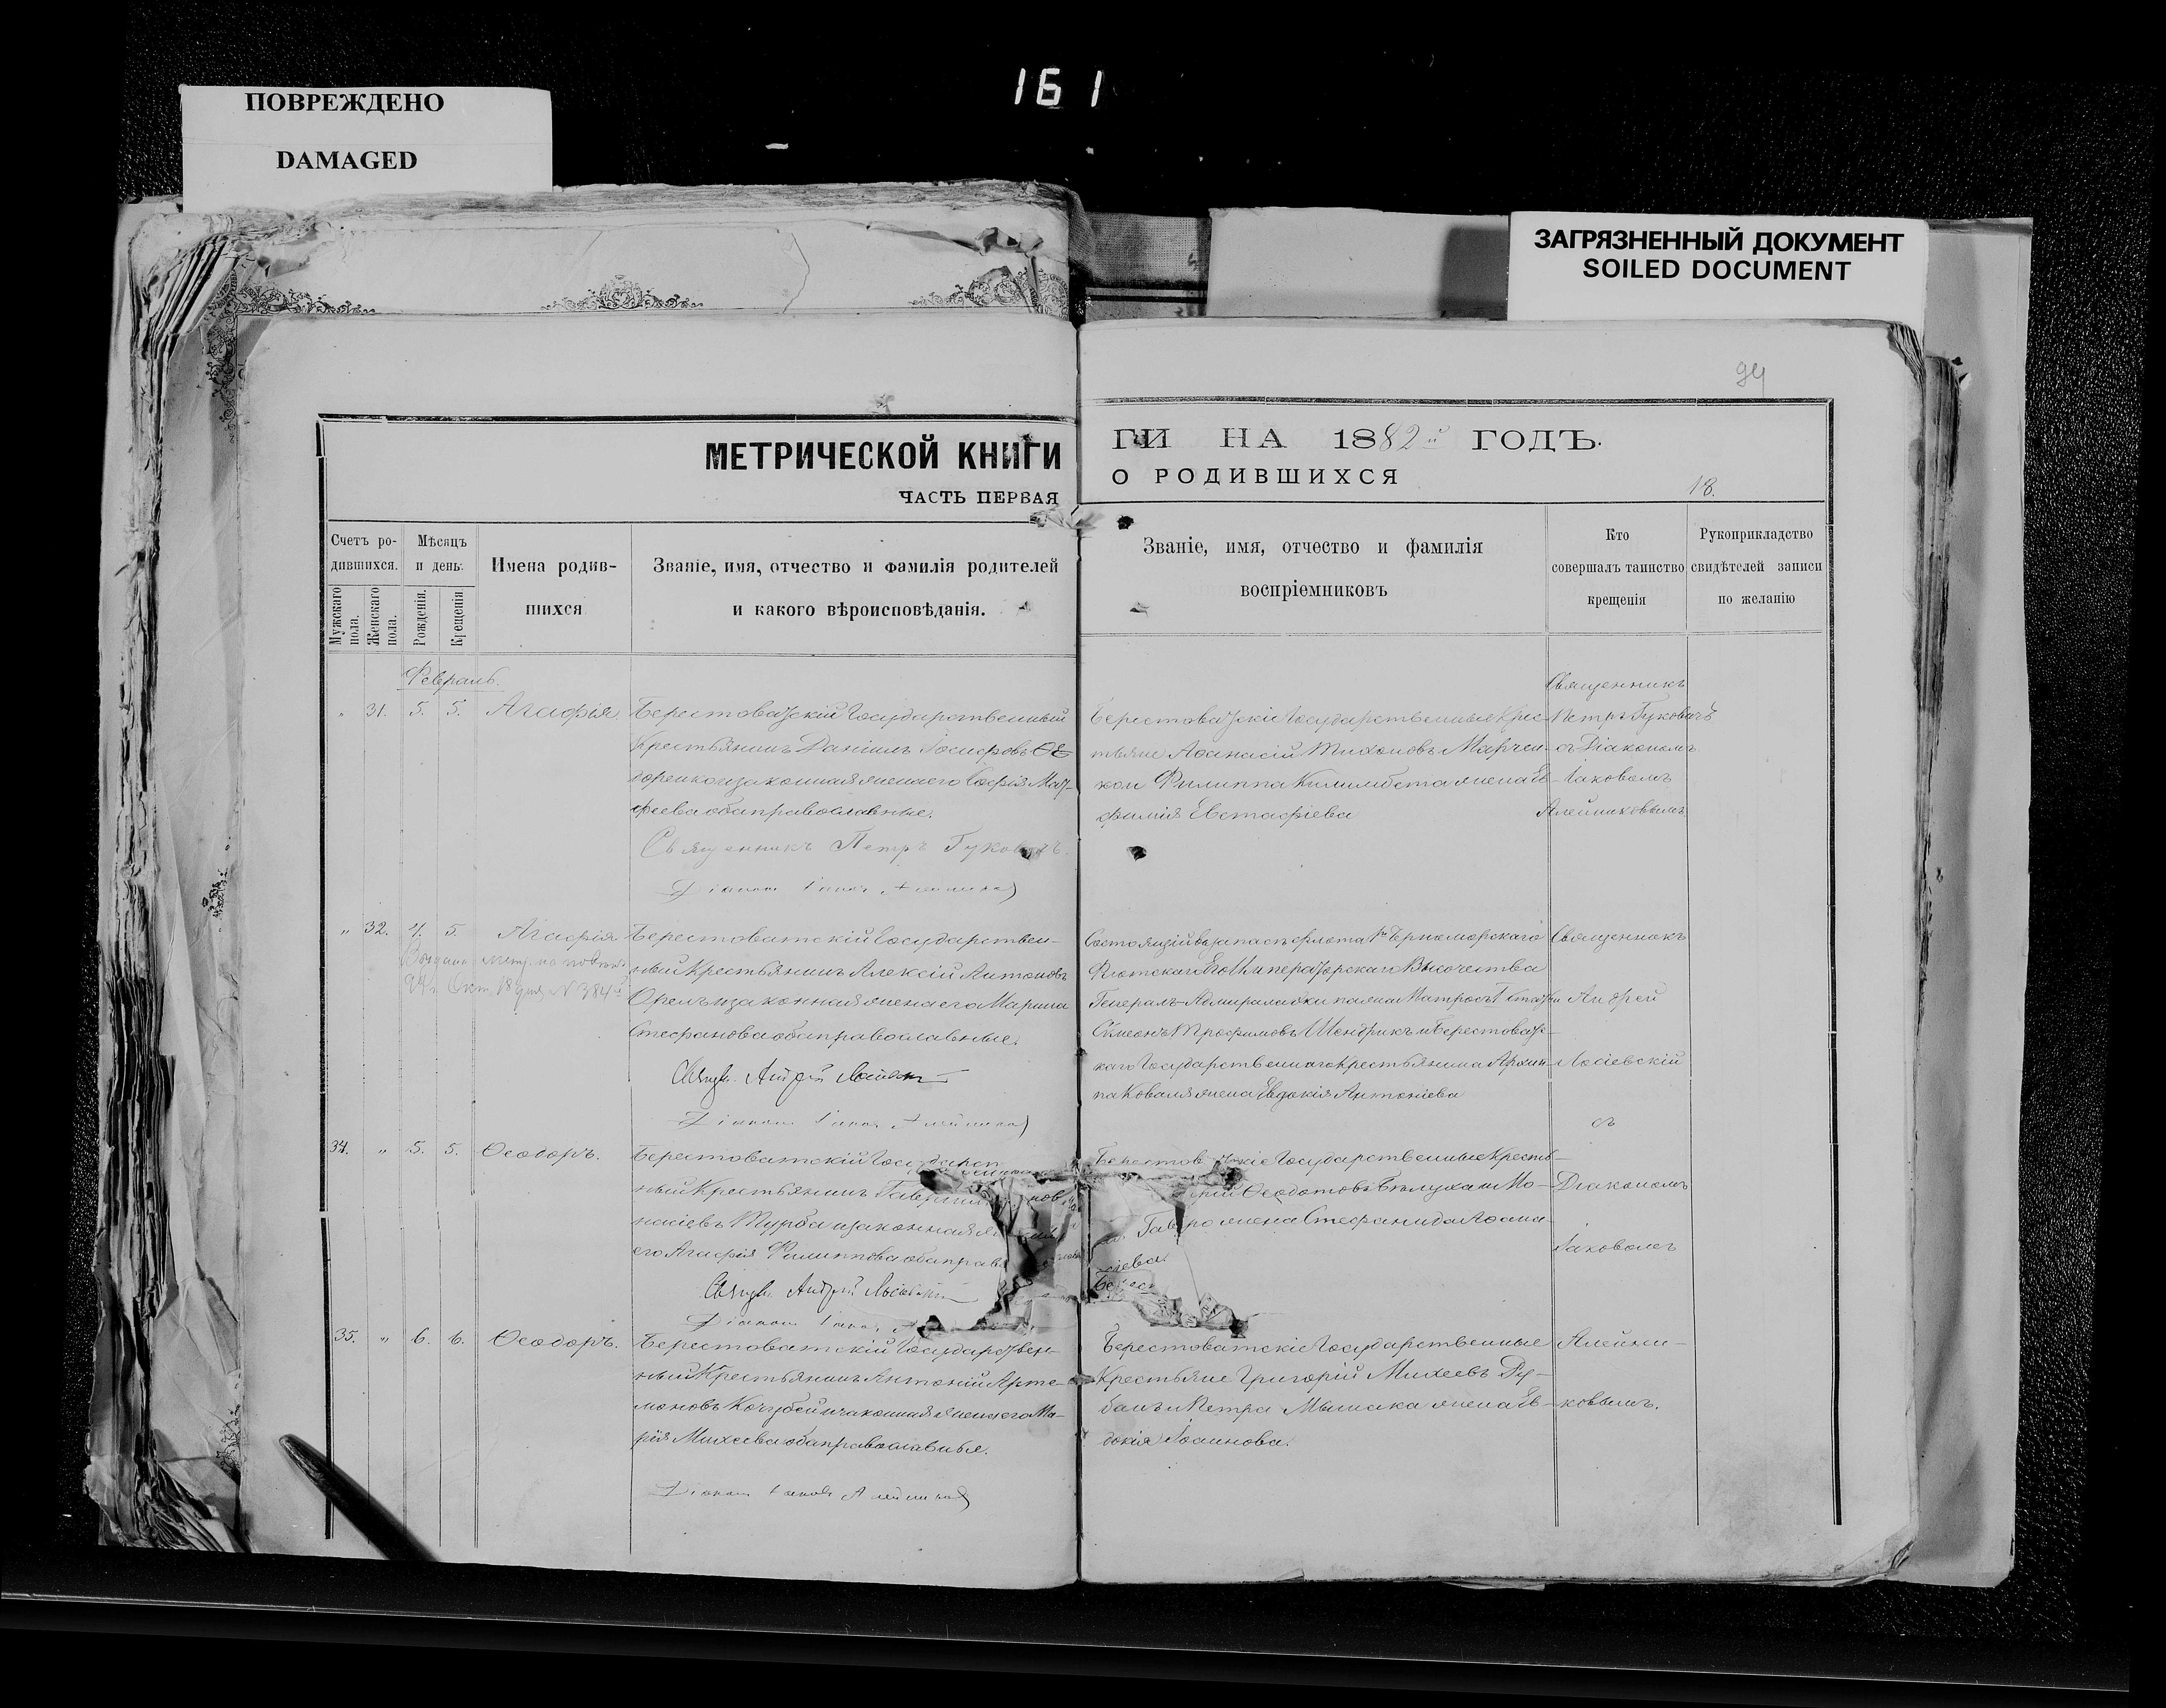 161
ПОВРЕЖДЕНО
DAMAGED
ЗАГРЯЗНЕННЫЙ ДОКУМЕНТ
SOILED DOCUMENT
94
МЕТРИЧЕСКОЙ КНИГИ
ЧАСТЬ ПЕРВАЯ
ГИ НА 1882й ГОДЪ.
О РОДИВШИХСЯ
18.
Счетъ ро-
дившихся.
Мужскаго пола.
Женскаго пола.
Мѣсяцъ
и день.
Рожденія.
Крещенія.
Имена родив-
шихся
Званіе, имя, отчество и фамилія родителей
и какого вѣроисповѣданія.
Званіе, имя, отчество и фамилія
воспріемниковъ
Кто
совершалъ таинство
крещенія
Рукоприкладство
свидѣтелей записи
по желанію
Февраль.
„ 31. 5. 5. Агафія
Берестоватскій Государственный
Крестьянинъ Даніилъ Іосифовъ Ѳе-
доренко и законная жена его Софія Мат-
феева оба православные.
Священникъ Петръ Гуковичъ
Діаконъ Іаковъ Алейниковъ
Берестоватскіе Государственные Крес-
тьяне Аѳанасій Тихоновъ Марчен-
ко и Филиппа Килимбета жена Ев-
фимія Евстафіева
Священникъ
Петръ Гуковичъ
съ Діакономъ
Іаковомъ
Алейниковымъ
„ 32. 4. 5. Агафія
Выдана метр.
94 г. Окт. 18 дня № 384
Берестоватскій Государствен-
ный Крестьянинъ Алексій Антоновъ
Орелъ и законная жена его Марина
Стефанова оба православные.
Андрей
Діаконъ Іаковъ Алейниковъ
Состоящій въ запасѣ флота 1го Черноморскаго
Флотскаго Его Императорскаго Высочества
Генералъ-Адмирала экипажа Матросъ 1 статьи
Симеонъ Трофимовъ Шендрикъ и Берестоват-
скаго Государственнаго Крестьянина Архип-
па Коваля жена Евдокія Антоніева
Священникъ
Андрей
Лосіевскій
съ
34. „ 5. 5. Ѳеодоръ.
Берестоватскій Государ
ный Крестьянинъ
насіевъ Турба и законная
его Агафія Филиппова оба прав
Андрей Лосіевскій
Діаконъ Іаковъ
Государственные Кресть-
Ѳеодотовъ Белуха и Мо-
жена Стефанида Аѳана-
сіева.
Діакономъ
Іаковомъ
35. „ 6. 6. Ѳеодоръ.
Берестоватскій Государствен-
ный Крестьянинъ Антоній Арте-
моновъ Кочубей и законная жена его Ма-
рія Михеева оба православные.
Діаконъ Іаковъ Алейниковъ
Берестоватскіе Государственные
Крестьяне Григорій Михеевъ Ру-
банъ и Петра Мышака жена Ев-
докія Іоаннова.
Алейни-
ковымъ.